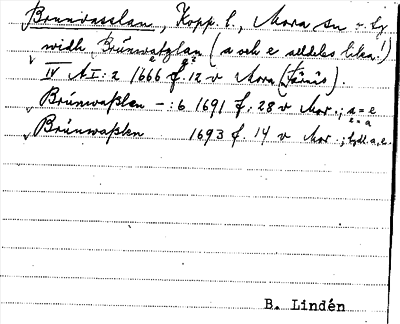 Brunvasslan, Kopp. l., Mora sn
widh Brúnwatzlan (a och e alldeles lika!)
IV AI: 2 1666 f. 12 v Mora (Färnäs).
Brúnwaßlen -: 6 1691 f. 28 v Mor.; a = e
Brúnwaßlen 1693 f. 14 v Mor.; tydl. a, e.
B. Lindén